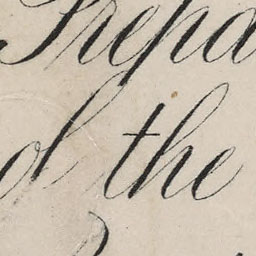 Prepa
d the